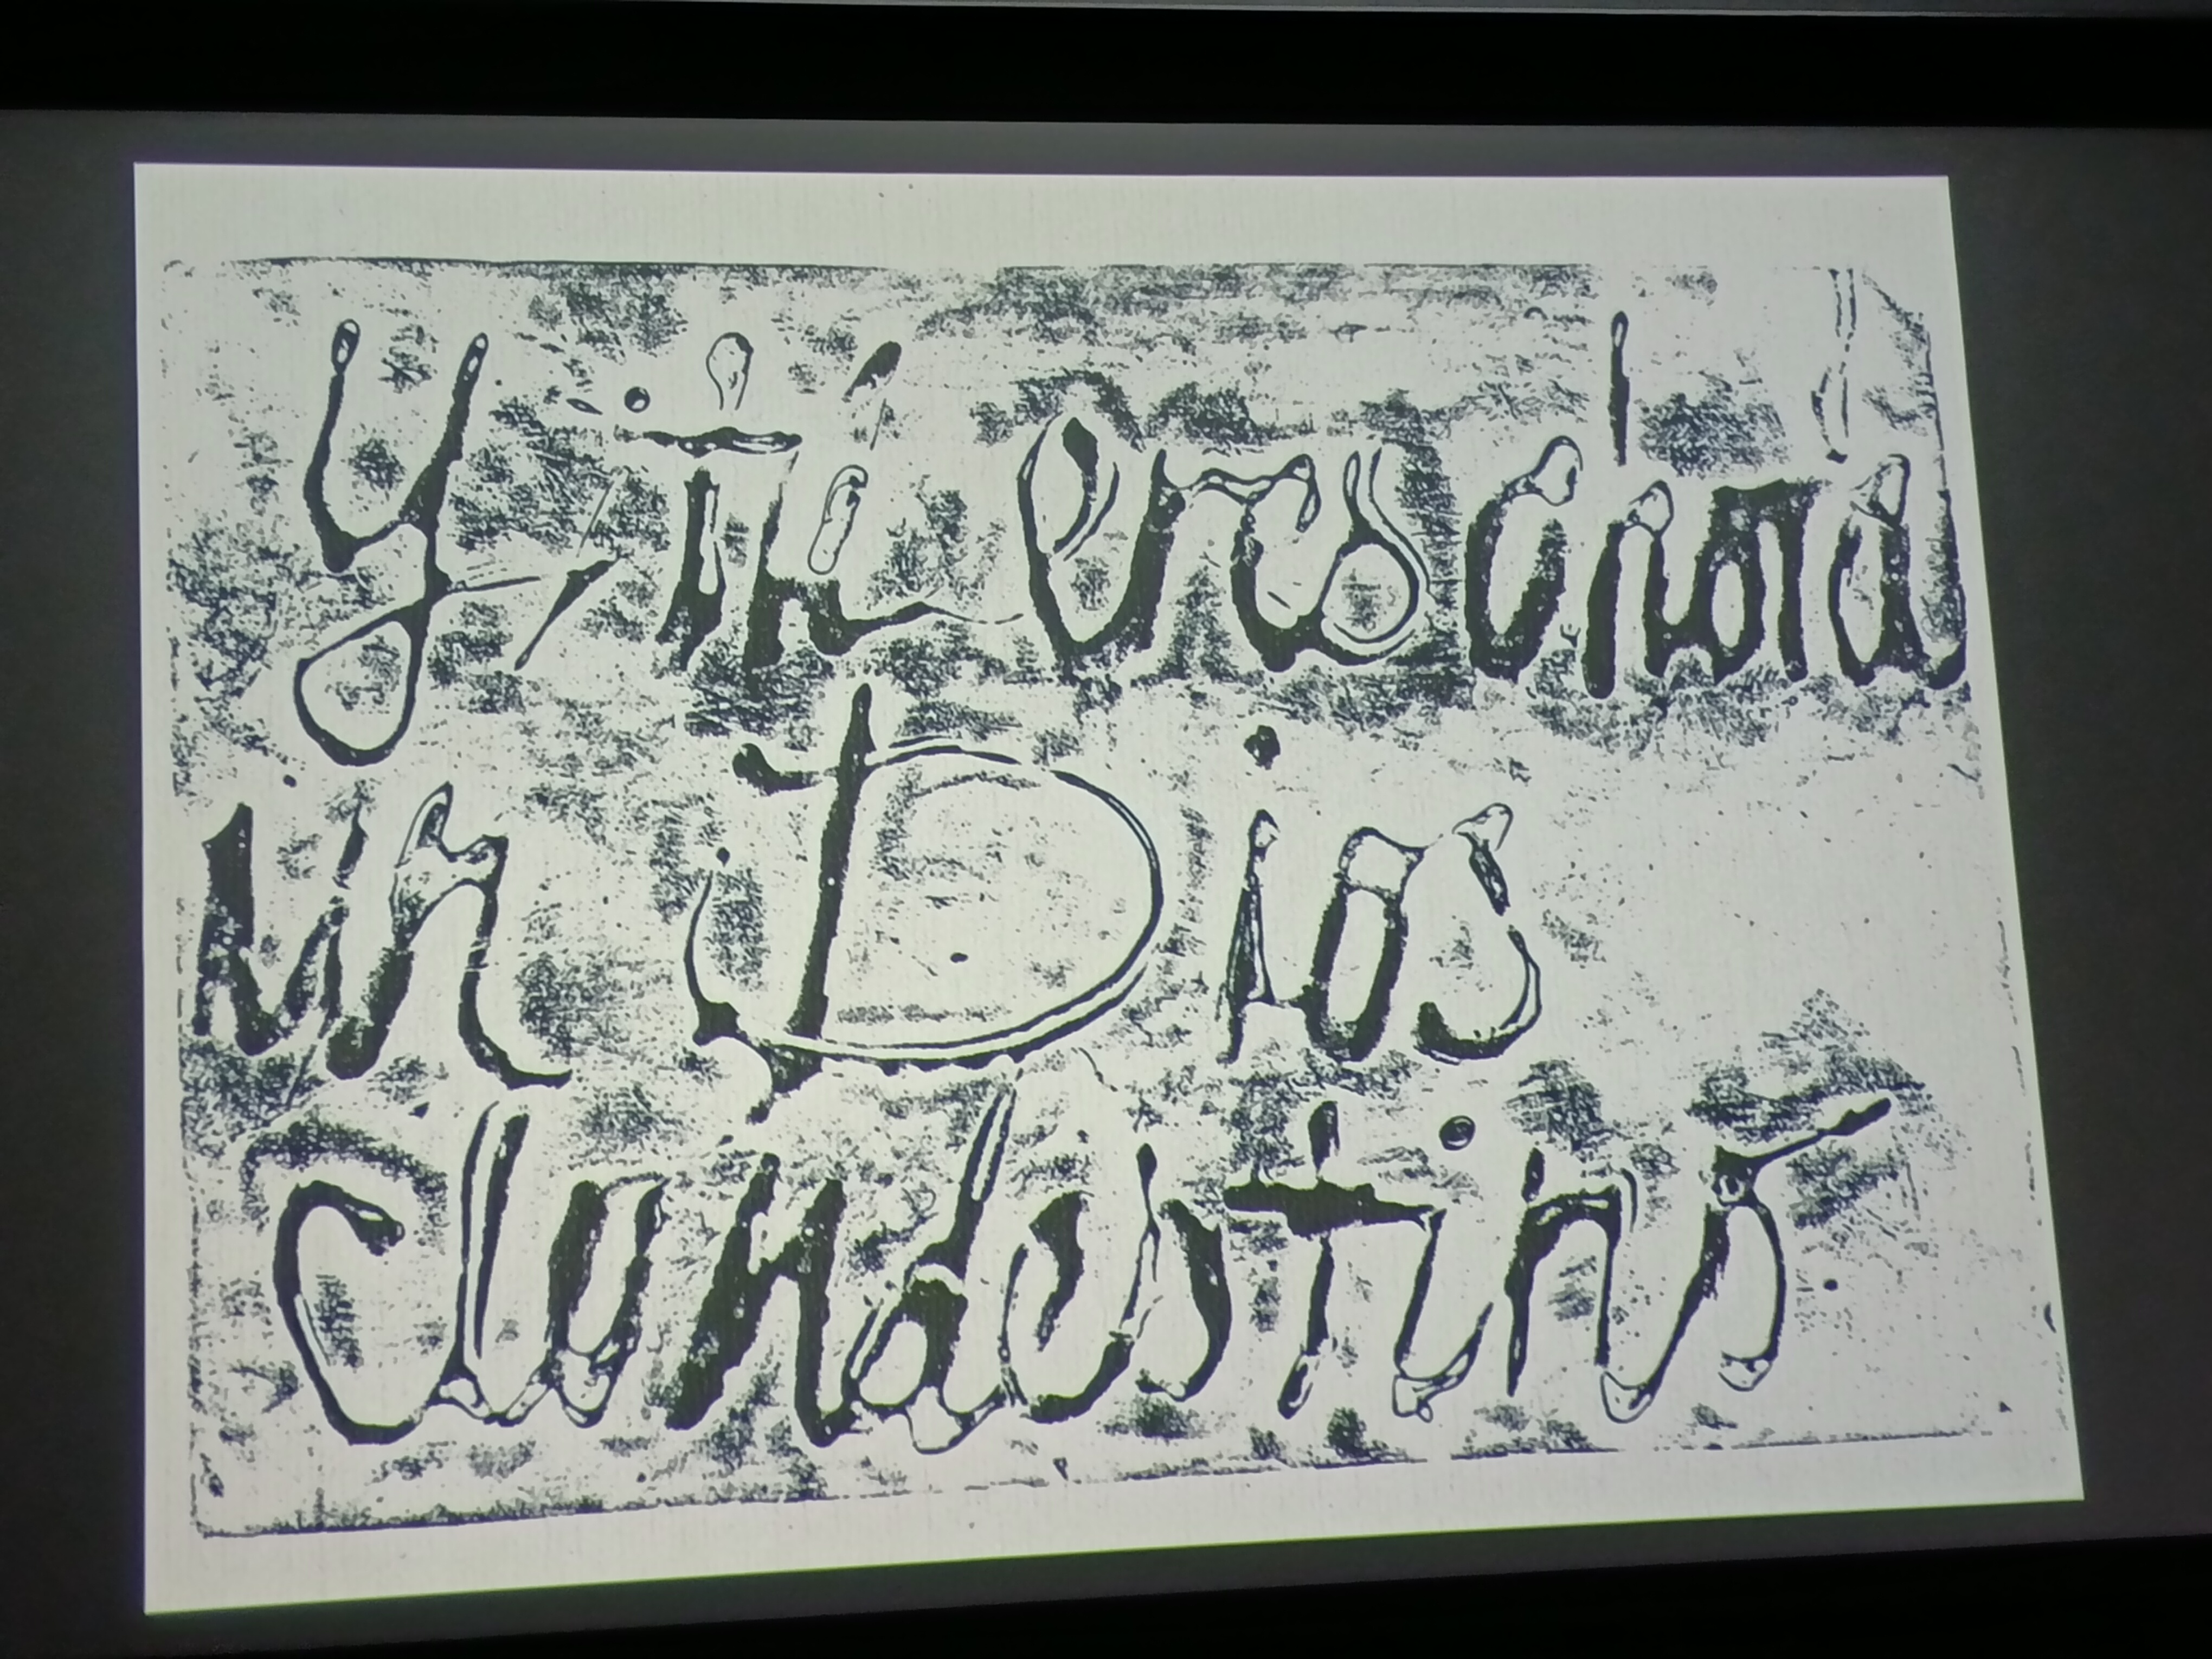 Y tú eres ahora
un Dios
Clandestino